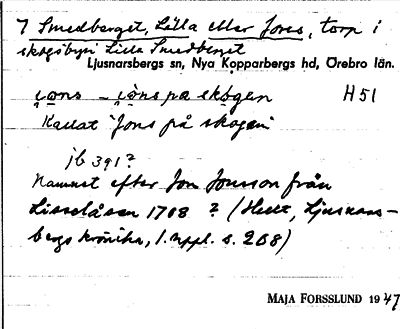 7 Smedberget, Lilla eller Jons, torp i
skogsbyn Lilla Smedberget
Ljusnarsbergs sn, Nya Kopparbergs hd, Örebro län.
jons – jöns pa skogen H 51
Kallat "Jons på skogen"
jb 391?
Namnet efter Jon Jonsson från
Lisselåsen 1708 ? (Hult, Ljusnars-
bergs krönika, 1. uppl. s. 268)
MAJA FORSSLUND 1947